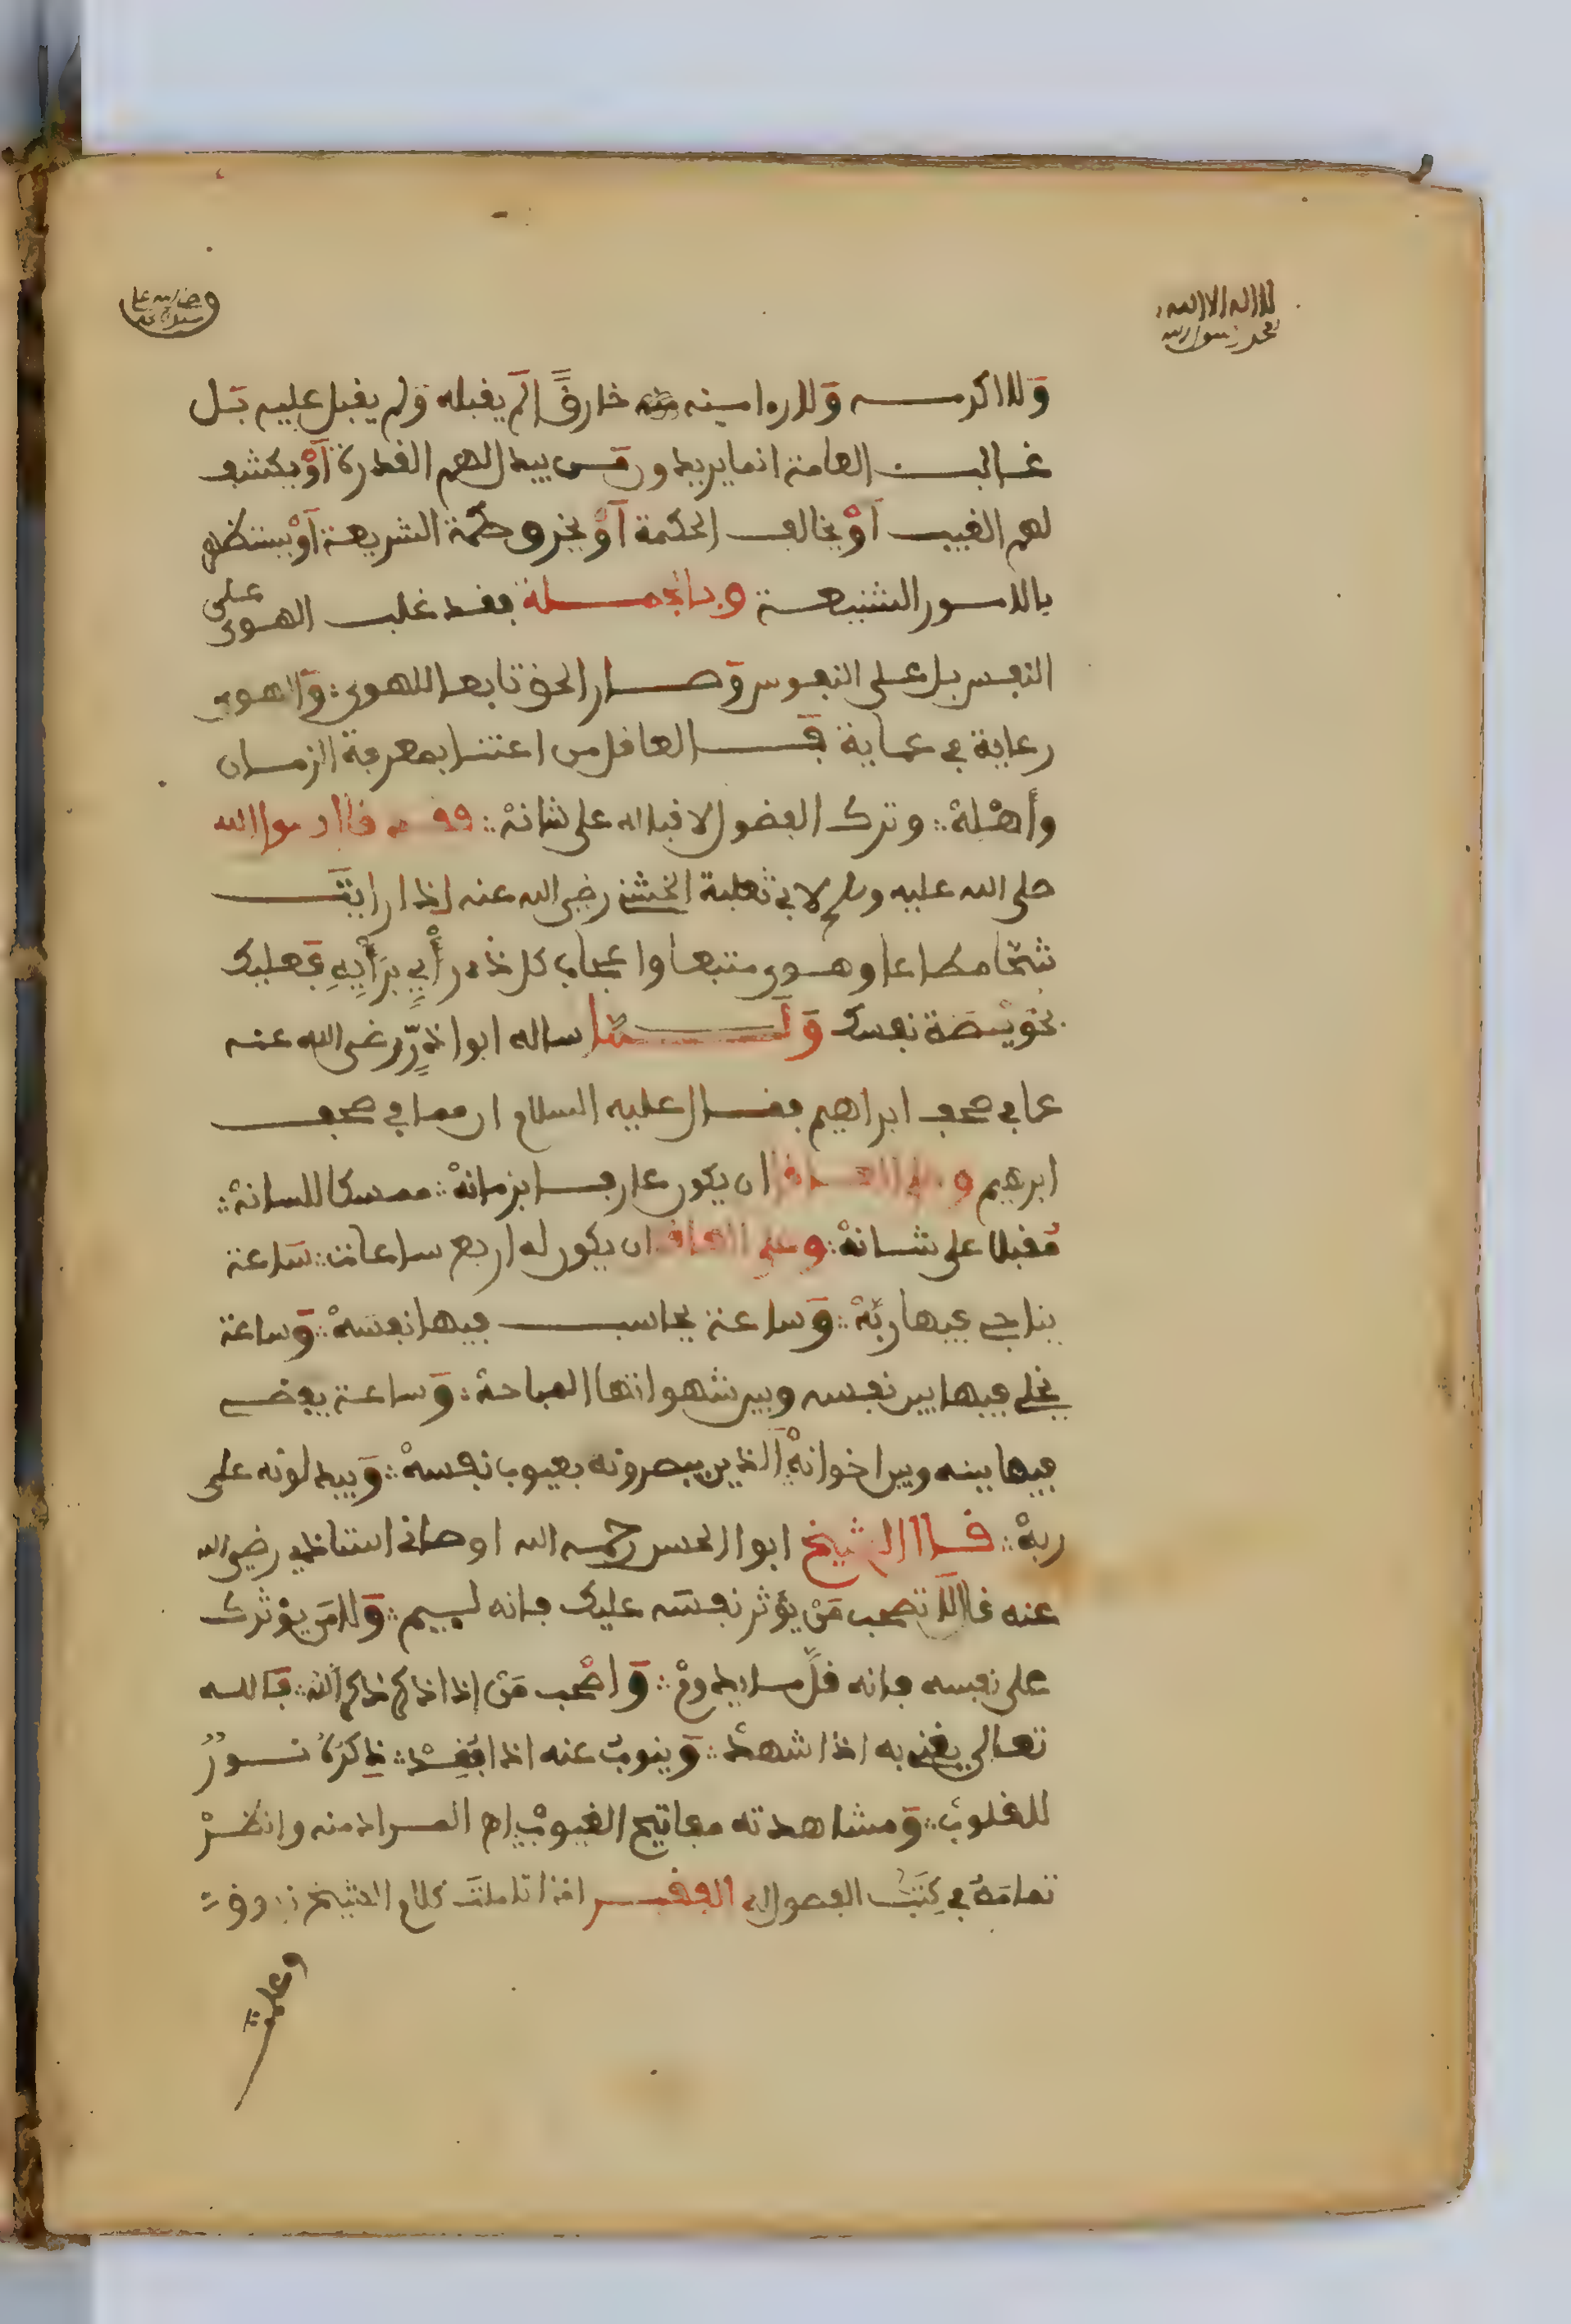 لا اله الا الله
محمد رسول الله
ولا اكرمه ولا راوا منه خارقا لم يقبله ولم يقبل عليه بل
غالب العامة انما يريدون من يبدل لهم القدرة أوْ يكشف
لهم الغيب أوْ يخالف الحكمة أوْ يخرق حكمة الشريعة أوْ يستظهر
بالامور الشنيعة وبالجملة فقد غلب الهوى على
النفس بل على النفوس وصار الحق تابعا للهوى وَالهوى
رعاية في عماية فالعاقل من اعتنا بمعرفة الزمان
وأهْلهْ وترك الفضول لاقباله على شانهْ وقد قال رسول الله
صلى الله عليه وسلم لابي ثعلبة الخشني رضي الله عنه إذا رايتَ
شحّا مطاعا وهوى متبعا واعجاب كل ذي رأْيٍ برَأْيِهِ فعليك
بخوَيْصَة نفسك وَلَمّا ساله ابوا ذرٍّ رضى الله عنه
عما في صحف ابراهيم فقال عليه السلام ان مما في صحف
ابرهيم وعلى العاقل ان يكون عارفا بزمانهْ ممسكا للسانهْ
مُقبلا على شانهْ وعلى العاقل ان يكون له اربع ساعات سَاعة
يناجي فيها ربّهْ وَساعة يحاسب فيها نفسهْ وَساعة
يخلي فيها بين نفسه وبين شهواتها المباحهْ وَساعة يفضي
فيها بينه وبين اخوانهْ الذين يبصرونه بعيوب نفسهْ وَيدلونه على
ربهْ قال الشيخ ابوا الحسن رحمه الله اوصاني استاذي رضي الله
عنه قال لا تصحب مَنْ يؤثر نفسَه عليك فانه لييم وَلا مَن يؤثرك
على نفسه فانه قلّ ما يدومْ وَاصْحب مَنْ إذا ذكر ذكر اللهْ فالله
تعالى يغني به اذا شهدْ وَينوبُ عنه اذا فُقِدْ ذِكرُهُ نورٌ
للقلوبْ وَمشاهدته مفاتيح الغيوبْ اه المراد منه وانظرْ
تمامَهُ في كِتَبُ الفصول الفقير اذا تاملتَ كلام الشيخ زروق
وعلمت